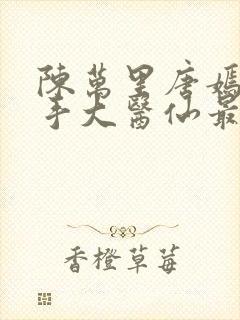 陳萬里唐嫣
手大醫仙最
香橙草莓